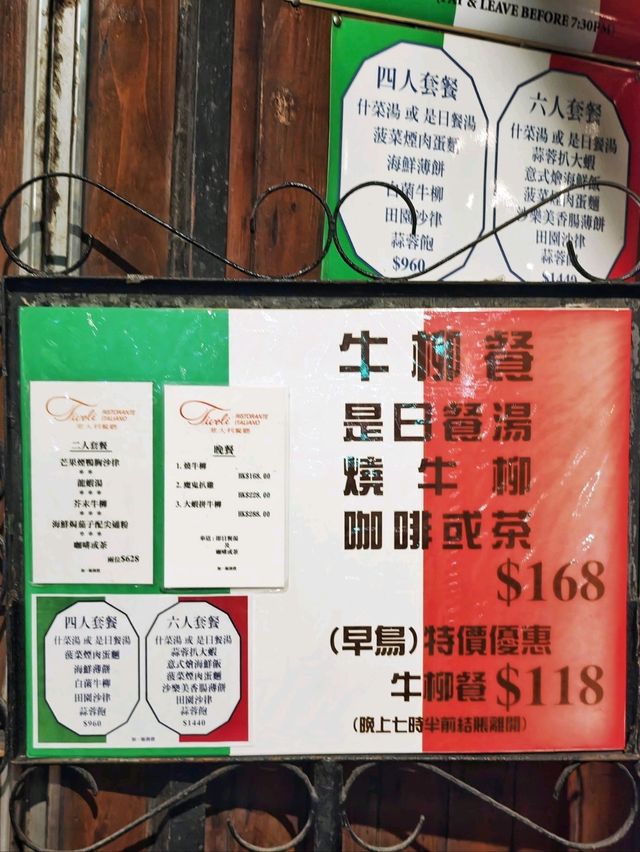 (PAY & LEAVE BEFORE 7:30PM)
四人套餐
什菜湯 或 是日餐湯
菠菜煙肉蛋麵
海鮮薄餅
白菌牛柳
田園沙律
蒜蓉飽
$960
六人套餐
什菜湯 或 是日餐湯
蒜蓉扒大蝦
意式燴海鮮飯
菠菜煙肉蛋麵
沙樂美香腸薄餅
田園沙律
蒜蓉飽
$1440
Tivoli RISTORANTE ITALIANO
意大利餐廳
二人套餐
芒果煙鴨胸沙律
***
龍蝦湯
***
芥末牛柳
***
海鮮焗茄子配尖通粉
***
咖啡或茶
兩位$628
加一服務費
Tivoli RISTORANTE ITALIANO
意大利餐廳
晚餐
1. 燒牛柳
HK$168.00
2. 魔鬼扒雞
HK$228.00
3. 大蝦拼牛柳
HK$288.00
奉送 : 即日餐湯
及
咖啡或茶
加一服務費
四人套餐
什菜湯 或 是日餐湯
菠菜煙肉蛋麵
海鮮薄餅
白菌牛柳
田園沙律
蒜蓉飽
$960
六人套餐
什菜湯 或 是日餐湯
蒜蓉扒大蝦
意式燴海鮮飯
菠菜煙肉蛋麵
沙樂美香腸薄餅
田園沙律
蒜蓉飽
$1440
加一服務費
牛柳餐
是日餐湯
燒牛柳
咖啡或茶
$168
(早鳥)特價優惠
牛柳餐 $118
(晚上七時半前結賬離開)